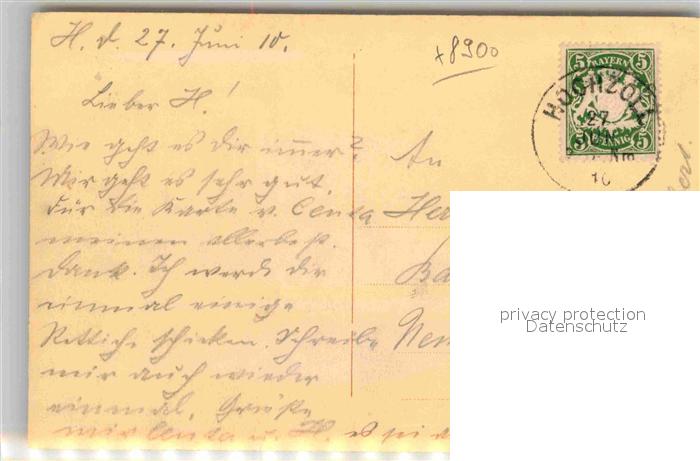 H. d. 27. Juni 10.
+8900
Lieber H.!
Wie geht es dir immer?
Mir geht es sehr gut.
Für die Karte v. Centa
meinen allerbest.
Dank. Ich werde dir
einmal einige
Rettiche schicken. Schreibe
mir auch wieder
einmal. Grüße
Centa u. H. es sei
An
Her
Ba
Neu
5 BAYERN 5
5 PFENNIG 5
HOCHZOLL
27
10
privacy protection
Datenschutz